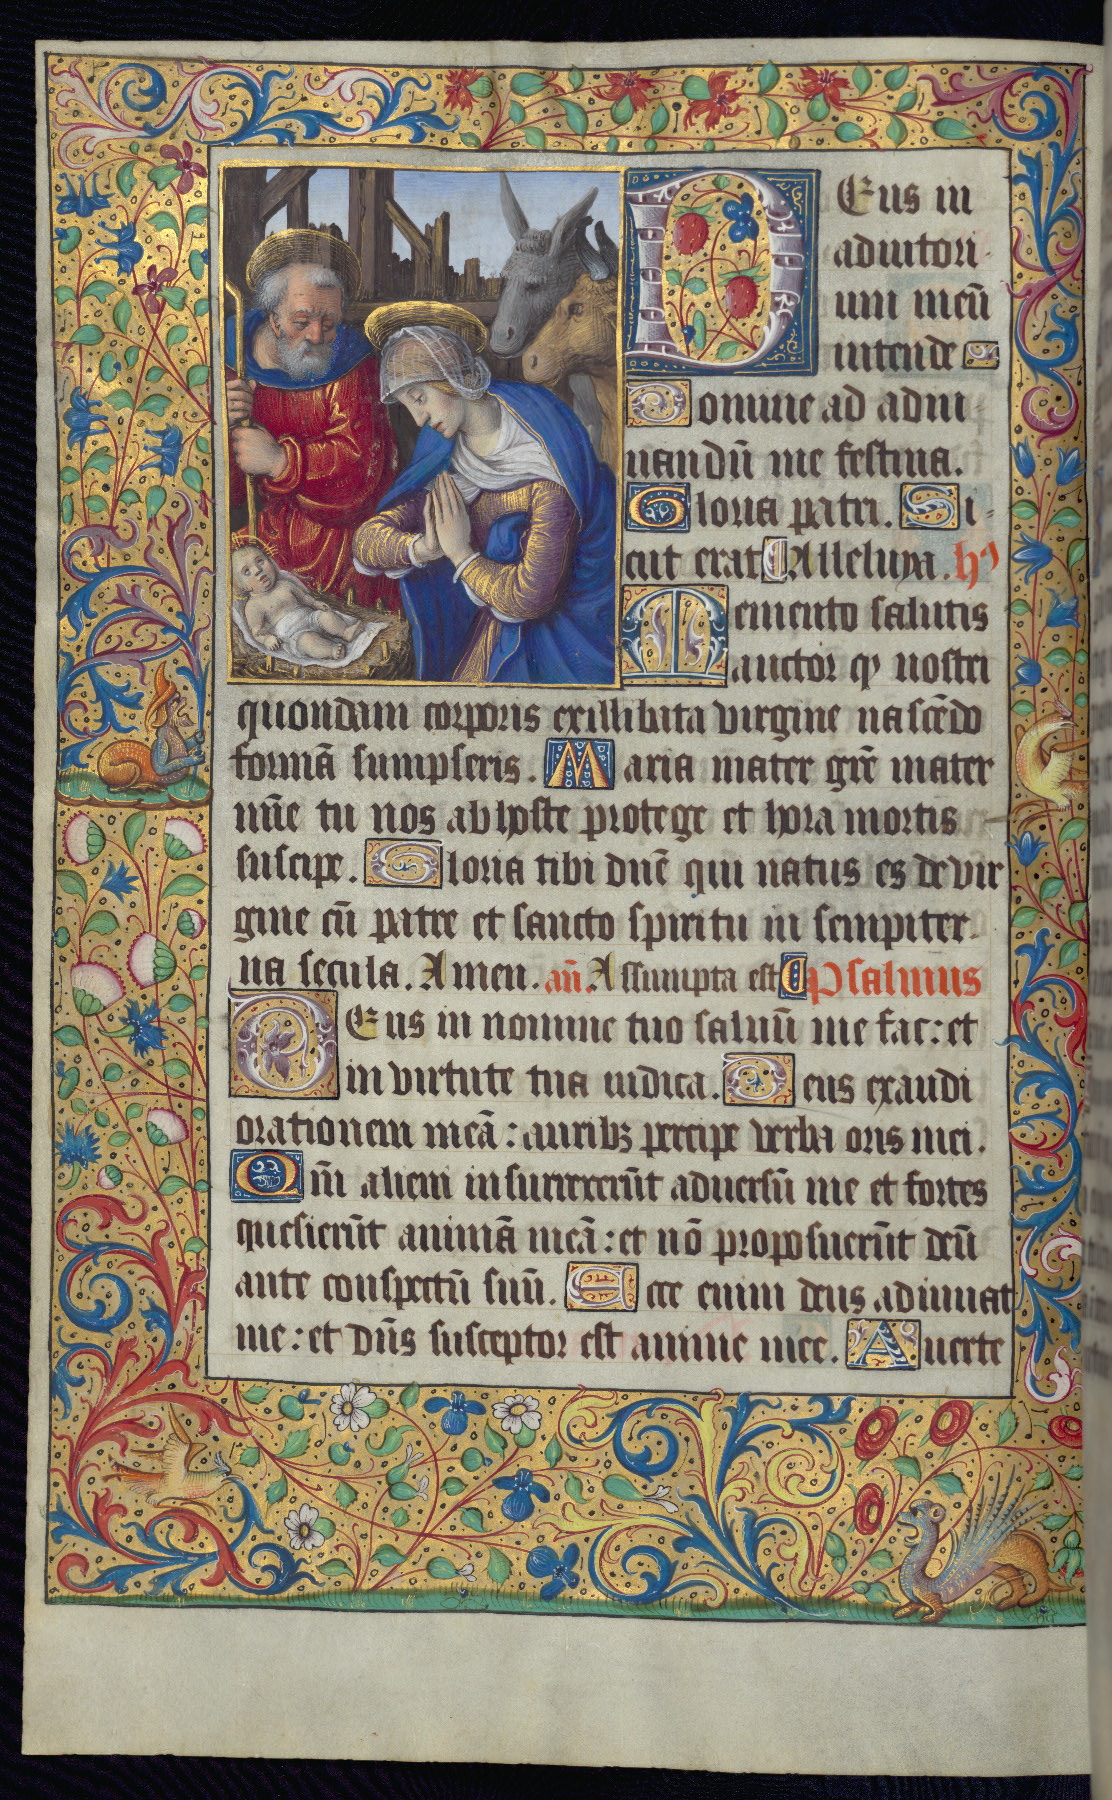 Deus in
adiutori
um meū
intende
Domine ad adiu
uandū me festina.
Gloria patri. Si
cut erat Alleluya. hꝰ
Memento salutis
auctor ꝙ nostri
quondam corporis exillibata virgine nascēdo
formā sumpseris. Maria mater grē mater
mīe tu nos ab hoste protege et hora mortis
suscipe. Gloria tibi dn̄e qui natus es de vir
gine cū patre et sancto spiritu in sempiter
na secula. Amen. an̄. Assumpta est Psalmus
Deus in nomine tuo saluū me fac: et
in virtute tua iudica. Deus exaudi
orationem meā: auribꝫ percipe verba oris mei.
Qm̄ alieni insurrexerūt aduersū me et fortes
quesierūt animā meā: et nō proposuerūt deū
ante conspectū suū. Ecce enim deus adiuuat
me: et dn̄s susceptor est anime mee. Auerte